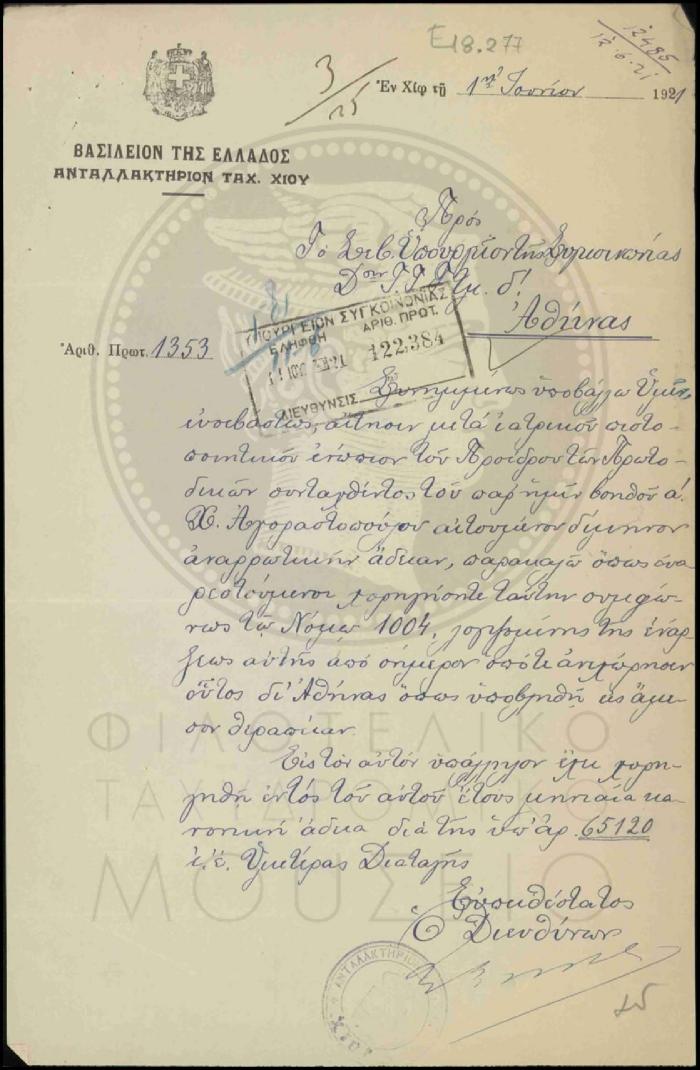 Ε18.277
12486
12.6.21
3/25
Ἐν Χίῳ τῇ 1ῃ Ἰουνίου 1921
ΒΑΣΙΛΕΙΟΝ ΤΗΣ ΕΛΛΑΔΟΣ
ΑΝΤΑΛΛΑΚΤΗΡΙΟΝ ΤΑΧ. ΧΙΟΥ
Πρὸς
Τὸ Σεβ. Ὑπουργεῖον τῆς Συγκοινωνίας
Δσιν Τ.Τ.Τ. Τμ. δ!
Ἀθήνας
Ἀριθ. Πρωτ. 1353
ΥΠΟΥΡΓΕΙΟΝ ΣΥΓΚΟΙΝΩΝΙΑΣ
ΕΛΗΦΘΗ ΑΡΙΘ. ΠΡΩΤ.
11 ΙΟΥΝ 1921 122384
ΔΙΕΥΘΥΝΣΙΣ
Συνημμένως ὑποβάλλω Ὑμῖν
εὐσεβάστως, αἴτησιν μετὰ ἰατρικοῦ πιστο-
ποιητικοῦ ἐνώπιον τοῦ Προέδρου τῶν Πρωτο-
δικῶν συνταχθέντος τοῦ παρ' ἡμῖν βοηθοῦ α'.
Χ. Ἀγοραστοπούλου αἰτουμένου δίμηνον
ἀναρρωτικὴν ἄδειαν, παρακαλῶ ὅπως εὐα-
ρεστούμενοι χορηγήσητε ταύτην συμφώ-
νως τῷ Νόμῳ 1004, λογιζομένης τῆς ἐνάρ-
ξεως αὐτῆς ἀπὸ σήμερον ὁπότε ἀνεχώρησεν
οὗτος δι' Ἀθήνας ὅπως ὑποβληθῇ εἰς ἄμε-
σον θεραπείαν.
Εἰς τὸν αὐτὸν ὑπάλληλον ἔχει χορη-
γηθῆ ἐντὸς τοῦ αὐτοῦ ἔτους μηνιαία κα-
νονικὴ ἄδεια διὰ τῆς ὑπ' ἀρ. 65120
ἐ.ἔ. Ὑμετέρας Διαταγῆς
Εὐπειθέστατος
Ὁ Διευθύνων
ΑΝΤΑΛΛΑΚΤΗΡΙΟΝ
ΧΙΟΥ
ΦΙΛΟΤΕΛΙΚΟ
ΤΑΧΥΔΡΟΜΙΚΟ
ΜΟΥΣΕΙΟ